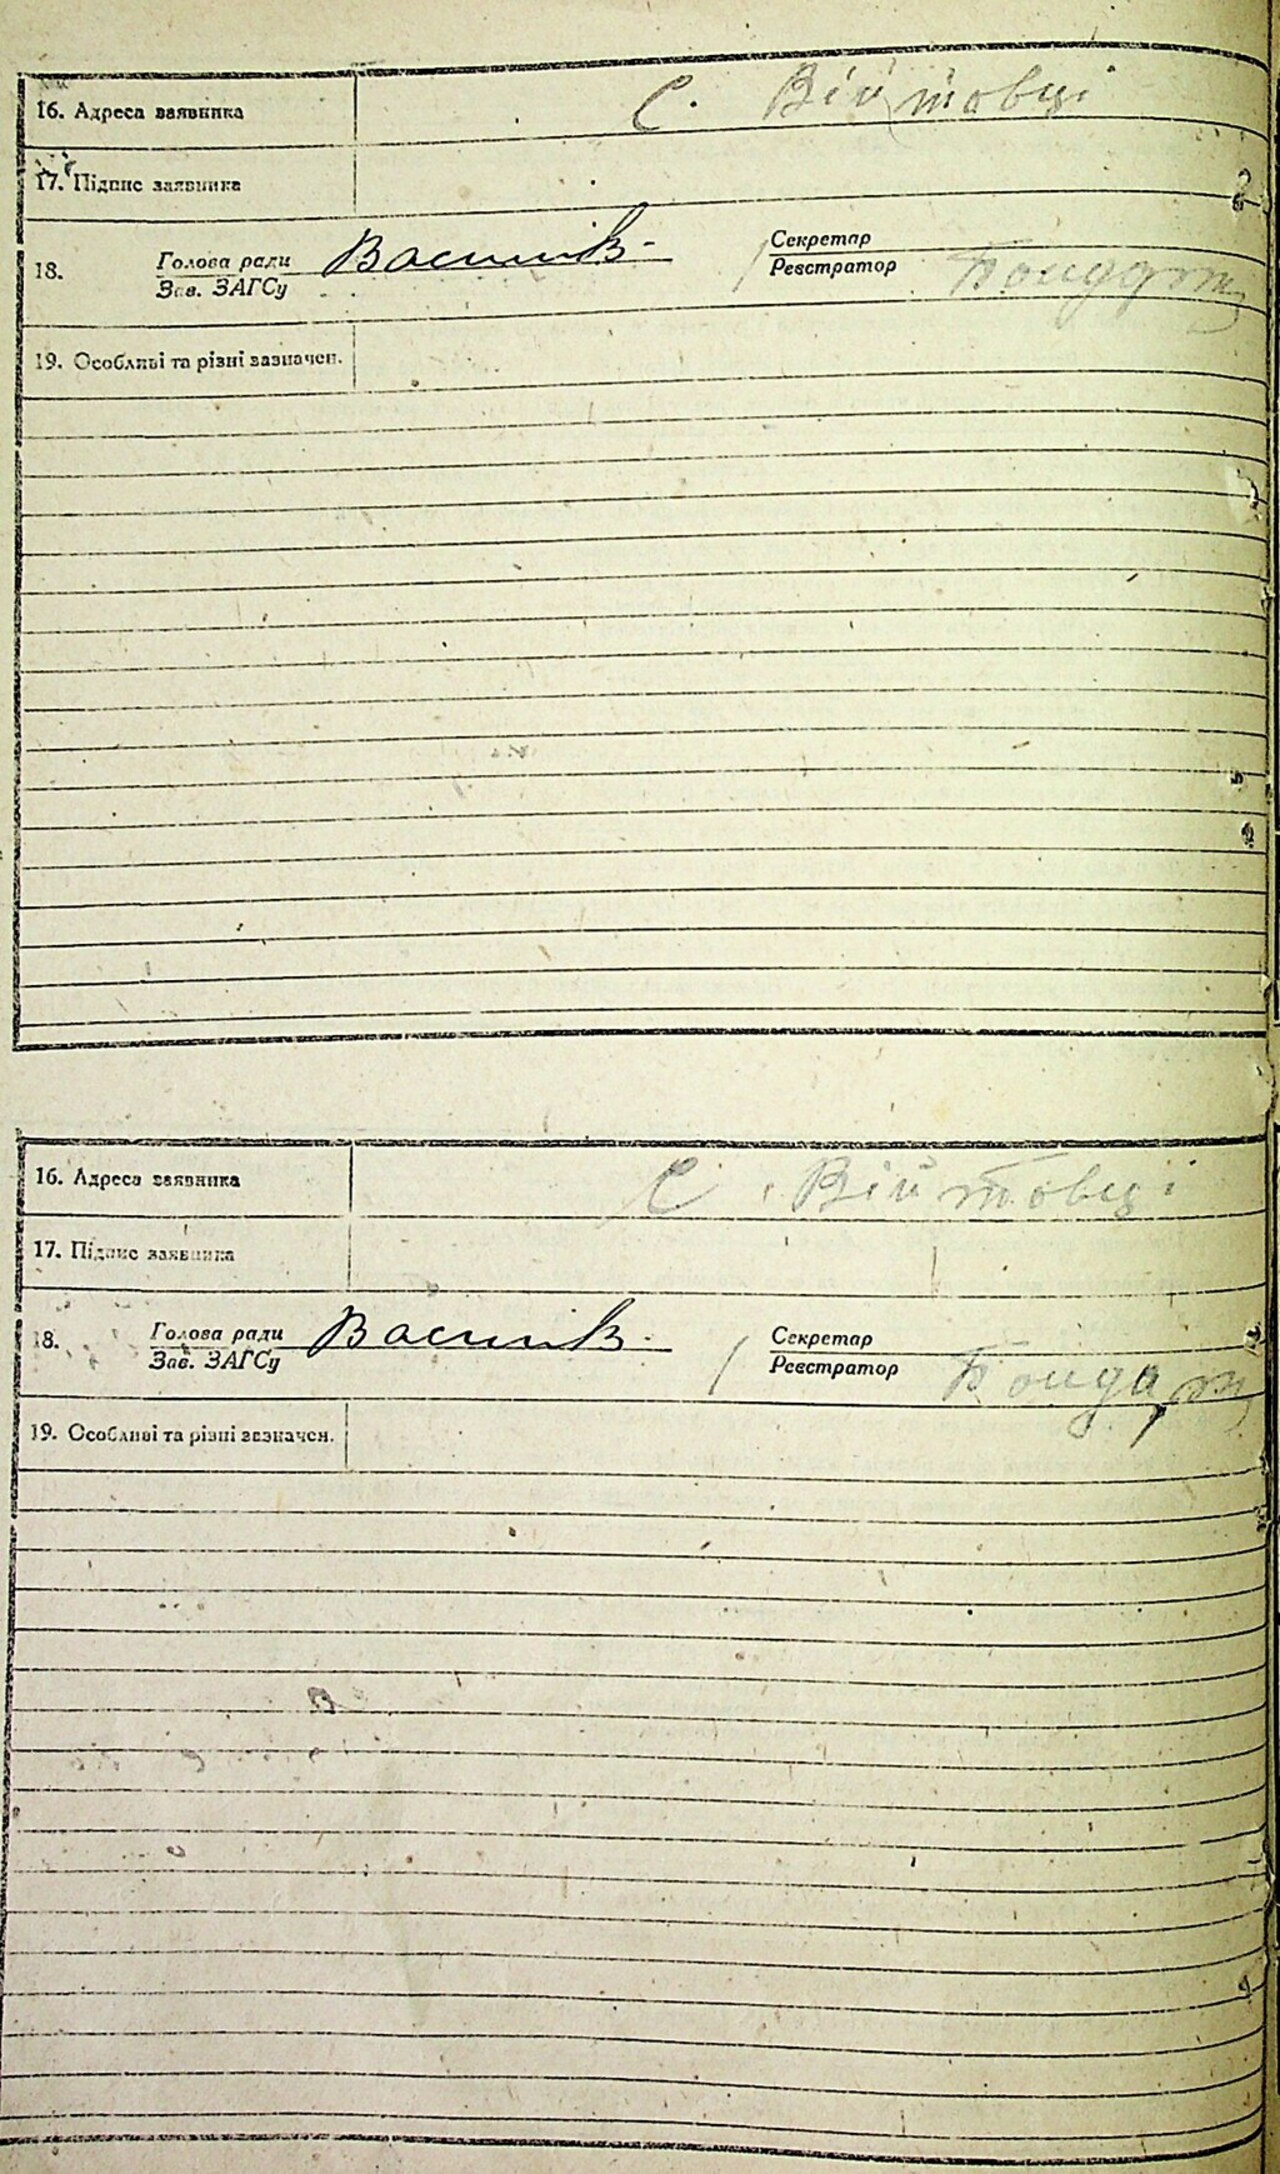 16. Адреса заявника С. Війтовці
17. Підпис заявника
18. Голова ради Василів Секретар
Зав. ЗАГСу Реєстратор Бондар
19. Особливі та різні зазначен.
16. Адреса заявника С. Війтовці
17. Підпис заявника
18. Голова ради Василів Секретар
Зав. ЗАГСу Реєстратор Бондар
19. Особливі та різні зазначен.